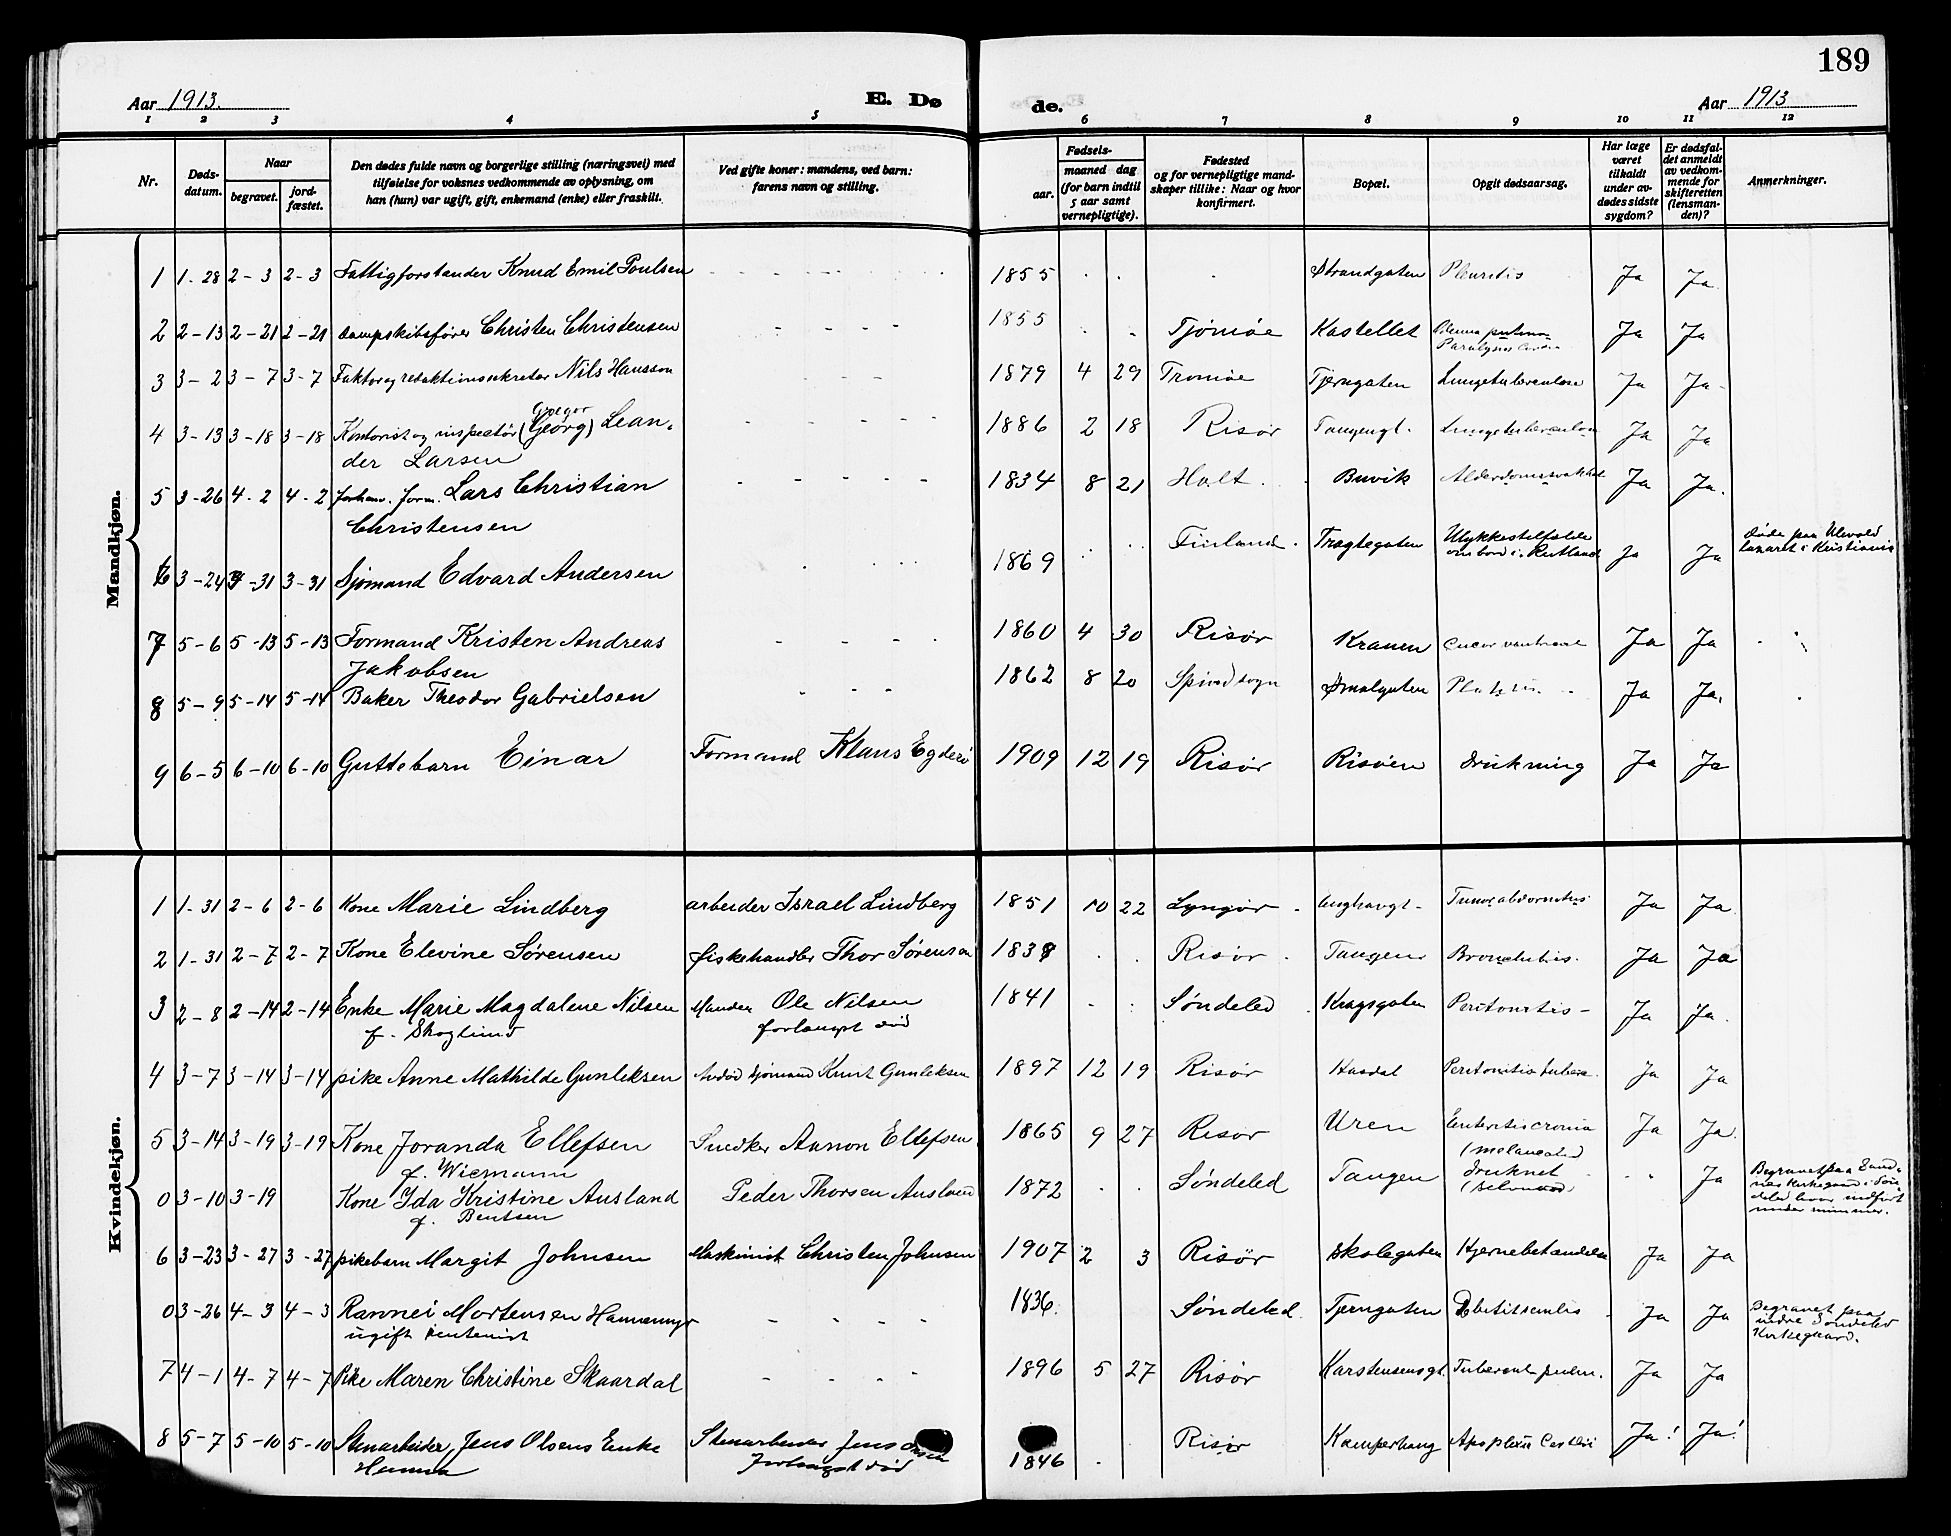 189
Aar 1913.
E. Dø
de.
Aar 1913
1 2 3 4 5 6 7 8 9 10 11 12
Nr.
Døds-
datum.
Naar
begravet.
jord-
fæstet.
Den dødes fulde navn og borgerlige stilling (næringsvei) med
tilføielse for voksnes vedkommende av oplysning, om
han (hun) var ugift, gift, enkemand (enke) eller fraskilt.
Ved gifte koner: mandens, ved barn:
farens navn og stilling.
Fødsels-
aar.
maaned dag
(for barn indtil
5 aar samt
vernepligtige).
Fødested
og for vernepligtige mand-
skaper tillike: Naar og hvor
konfirmert.
Bopæl.
Opgit dødsaarsag.
Har læge
været
tilkaldt
under av-
dødes sidste
sygdom?
Er dødsfal-
det anmeldt
av vedkom-
mende for
skifteretten
(lensman-
den)?
Anmerkninger.
Mandkjøn.
1 1-28 2-3 2-3 Fattigforstander Knud Emil Poulsen 1855 Strandgaten Pleuritis Ja Ja
2 2-13 2-21 2-21 Dampskibsfører Christen Christensen 1855 Tjømøe Kastellet Ja Ja
3 3-2 3-7 3-7 Faktor og redaktionssekretær Nils Hansson 1879 4 29 Tromøe Tjerngaten Lungetuberculose Ja Ja
Gregor
4 3-13 3-18 3-18 Kontorist og inspectør (Georg) Lean-
der Larsen 1886 2 18 Risør Tangengt. Lungetuberculose Ja Ja
5 3-26 4-2 4-2 forhenv. form. Lars Christian
Christensen 1834 8 21 Holt Buvik Alderdomssvakhet Ja Ja.
6 3-24 3-31 3-31 Sjømand Edvard Andersen 1869 Finland Tragtegaten Ulykkestilfælde
ombord i Rutland Ja Ja Døde paa Ulevold
Lazaret i Kristiania
7 5-6 5-13 5-13 Formand Kristen Andreas
Jakobsen 1860 4 30 Risør Kranen Cancer ventriculi Ja Ja
8 5-9 5-14 5-14 Baker Theodor Gabrielsen 1862 8 20 Spindsogn Smalgaten Ja Ja.
9 6-5 6-10 6-10 Guttebarn Einar Formand Klaus Egderø 1909 12 19 Risør Risøen drukning Ja Ja
Kvindekjøn.
1 1-31 2-6 2-6 Kone Marie Lindberg arbeider Israel Lindberg 1851 10 22 Lyngør Ja Ja
2 1-31 2-7 2-7 Kone Elevine Sørensen fiskehandler Thor Sørensen 1838 Risør Tangen Bronchitis. Ja Ja
3 2-8 2-14 2-14 Enke Marie Magdalene Nilsen
f. Skoglund Manden Ole Nilsen
forlængst død 1841 Søndeled Kragsgaten Peritonitis Ja Ja.
4 3-7 3-14 3-14 pike Anne Mathilde Gunleksen Avdød sjømand Knut Gunleksen 1897 12 19 Risør Hasdal Peritonitis tuberc. Ja Ja
5 3-14 3-19 3-19 Kone Joranda Ellefsen
f. Wiemann Snedker Aanon Ellefsen 1865 9 27 Risør Uren Enteritis cronia Ja Ja.
0 3-10 3-19 Kone Ida Kristine Ausland
f. Bentsen Peder Thorsen Ausland 1872 Søndeled Tangen (melancoled
druknet
(selvmord) Ja Begravet paa Sand-
nes kirkegaard i Søn-
deled hvor indført
under nummer.
6 3-23 3-27 3-27 pikebarn Margit Johnsen Maskinist Christen Johnsen 1907 2 3 Risør Skolegaten Hjernebetændelse Ja Ja
0 3-26 4-3 4-3 Rannei Mortensen Hammmyr
ugift rentenist 1836. Søndeled Tjerngaten Ja Ja Begravet paa
indre Søndeled
Kirkegaard.
7 4-1 4-7 4-7 Pike Maren Christine Skaardal 1896 5 27 Risør Karstensensgt. Tubercul. pulm. Ja Ja
8 5-7 5-10 5-10 Stenarbeider Jens Olsens Enke
Hanna Stenarbeider Jens Olsen
forlængst død 1846 Risør Kamperhaug Ja! Ja!